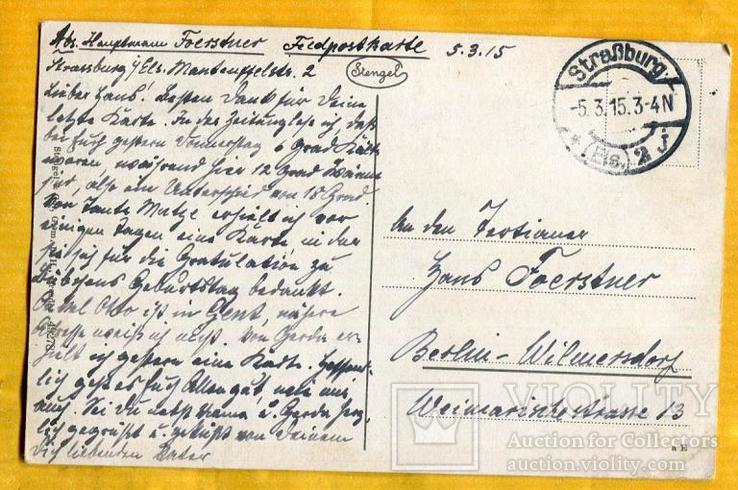 Abs. Hauptmann Foerstner Feldpostkarte 5.3.15
Strassburg i/Els. Manteuffelstr. 2
Stengel
Straßburg
-5.3.15.3-4N
* (Els.) 2 j
Lieber Hans! Besten Dank für Deine
letzte Karte. In der Zeitung lese ich, daß
bei Euch gestern Donnerstag 6 Grad Kälte
waren während hier 12 Grad Wärme
also ein Unterschied von 18 Grad.
Von Tante Metze erhielt ich vor
einigen Tagen eine Karte in der
sie für die Gratulation zu
Geburtstag bedankt.
Onkel Otto ist in Gent, nähere
Adresse weiß ich nicht. Von Gerda er-
hielt ich gestern eine Karte. Hoffent-
lich geht es Euch Allen gut, wie mir
auch. Sei Du nebst Mama u. Gerda herz-
lich gegrüßt u. geküßt von Deinem
Dich liebenden Vater
An den Tertianer
Hans Foerstner
Berlin-Wilmersdorf
Weimarische strasse 13
VIOLITY
Auction for Collectors
auction.violity.com